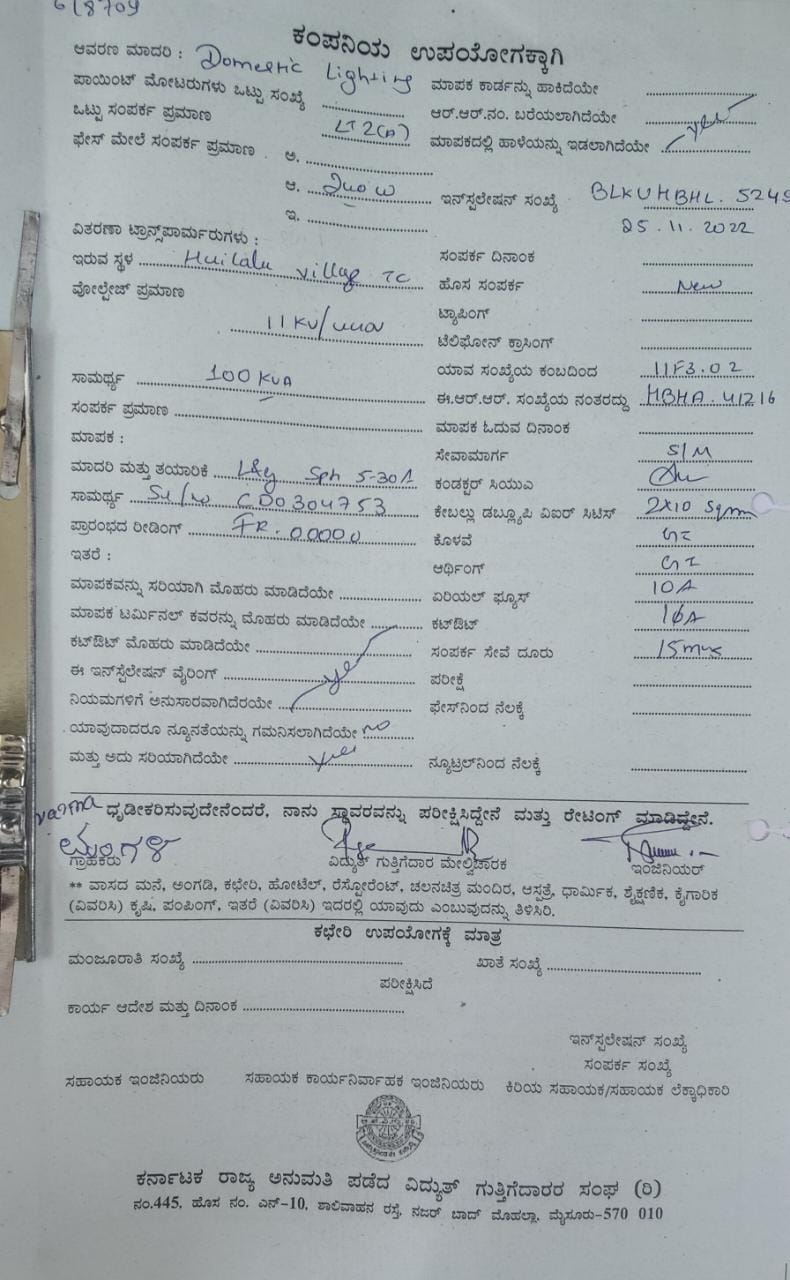 618709
ಕಂಪನಿಯ ಉಪಯೋಗಕ್ಕಾಗಿ
ಆವರಣ ಮಾದರಿ : Domestic Lighting
ಪಾಯಿಂಟ್ ಮೋಟರುಗಳು ಒಟ್ಟು ಸಂಖ್ಯೆ ಮಾಪಕ ಕಾರ್ಡನ್ನು ಹಾಕಿದೆಯೇ
ಒಟ್ಟು ಸಂಪರ್ಕ ಪ್ರಮಾಣ LT2(A) ಆರ್.ಆರ್.ನಂ. ಬರೆಯಲಾಗಿದೆಯೇ yes
ಫೇಸ್ ಮೇಲೆ ಸಂಪರ್ಕ ಪ್ರಮಾಣ ಅ. ಮಾಪಕದಲ್ಲಿ ಹಾಳೆಯನ್ನು ಇಡಲಾಗಿದೆಯೇ
ಆ. 240 W ಇನ್‌ಸ್ಪಲೇಷನ್ ಸಂಖ್ಯೆ BLKUHBHL. 5249
ಇ. 25.11.2022
ವಿತರಣಾ ಟ್ರಾನ್ಸ್‌ಪಾರ್ಮರುಗಳು :
ಇರುವ ಸ್ಥಳ Huilalu village TC ಸಂಪರ್ಕ ದಿನಾಂಕ
ವೋಲ್ಟೇಜ್ ಪ್ರಮಾಣ ಹೊಸ ಸಂಪರ್ಕ New
11KV/440V ಟ್ಯಾಪಿಂಗ್
ಟೆಲಿಫೋನ್ ಕ್ರಾಸಿಂಗ್
ಸಾಮರ್ಥ್ಯ 100 KVA ಯಾವ ಸಂಖ್ಯೆಯ ಕಂಬದಿಂದ 11F3.02
ಸಂಪರ್ಕ ಪ್ರಮಾಣ ಈ.ಆರ್.ಆರ್. ಸಂಖ್ಯೆಯ ನಂತರದ್ದು HBHA.41216
ಮಾಪಕ : ಮಾಪಕ ಓದುವ ದಿನಾಂಕ
ಮಾದರಿ ಮತ್ತು ತಯಾರಿಕೆ L&G Sph 5-30A ಸೇವಾಮಾರ್ಗ S/M
ಸಾಮರ್ಥ್ಯ Sl/No CD0304753 ಕಂಡಕ್ಟರ್ ಸಿಯುಎ
ಪ್ರಾರಂಭದ ರೀಡಿಂಗ್ FR. 00000 ಕೇಬಲ್ಲು ಡಬ್ಲ್ಯೂಪಿ ವಿಐರ್ ಸಿಟಿಸ್ 2X10 Sqmm
ಇತರೆ : ಕೊಳವೆ GI
ಆರ್ಥಿಂಗ್ GI
ಮಾಪಕವನ್ನು ಸರಿಯಾಗಿ ಮೊಹರು ಮಾಡಿದೆಯೇ ಏರಿಯಲ್ ಫ್ಯೂಸ್ 10A
ಮಾಪಕ ಟರ್ಮಿನಲ್ ಕವರನ್ನು ಮೊಹರು ಮಾಡಿದೆಯೇ ಕಟ್‌ಔಟ್ 16A
ಕಟ್‌ಔಟ್ ಮೊಹರು ಮಾಡಿದೆಯೇ ಸಂಪರ್ಕ ಸೇವೆ ದೂರು 15mts
ಈ ಇನ್‌ಸ್ಪೆಲೇಷನ್ ವೈರಿಂಗ್ yes ಪರೀಕ್ಷೆ
ನಿಯಮಗಳಿಗೆ ಅನುಸಾರವಾಗಿದೆರಯೇ ಫೇಸ್‌ನಿಂದ ನೆಲಕ್ಕೆ
ಯಾವುದಾದರೂ ನ್ಯೂನತೆಯನ್ನು ಗಮನಿಸಲಾಗಿದೆಯೇ no
ಮತ್ತು ಅದು ಸರಿಯಾಗಿದೆಯೇ yes ನ್ಯೂಟ್ರಲ್‌ನಿಂದ ನೆಲಕ್ಕೆ
ಧೃಡೀಕರಿಸುವುದೇನೆಂದರೆ, ನಾನು ಸ್ಥಾವರವನ್ನು ಪರೀಕ್ಷಿಸಿದ್ದೇನೆ ಮತ್ತು ರೇಟಿಂಗ್ ಮಾಡಿದ್ದೇನೆ.
ಮಂಗಳ
ಗ್ರಾಹಕರು ವಿದ್ಯುತ್ ಗುತ್ತಿಗೆದಾರ ಮೇಲ್ವಿಚಾರಕ ಇಂಜಿನಿಯರ್
** ವಾಸದ ಮನೆ, ಅಂಗಡಿ, ಕಛೇರಿ, ಹೋಟೆಲ್, ರೆಸ್ಟೋರೆಂಟ್, ಚಲನಚಿತ್ರ ಮಂದಿರ, ಆಸ್ಪತ್ರೆ, ಧಾರ್ಮಿಕ, ಶೈಕ್ಷಣಿಕ, ಕೈಗಾರಿಕ
(ವಿವರಿಸಿ) ಕೃಷಿ, ಪಂಪಿಂಗ್, ಇತರೆ (ವಿವರಿಸಿ) ಇದರಲ್ಲಿ ಯಾವುದು ಎಂಬುವುದನ್ನು ತಿಳಿಸಿರಿ.
ಕಛೇರಿ ಉಪಯೋಗಕ್ಕೆ ಮಾತ್ರ
ಮಂಜೂರಾತಿ ಸಂಖ್ಯೆ ಖಾತೆ ಸಂಖ್ಯೆ
ಪರೀಕ್ಷಿಸಿದೆ
ಕಾರ್ಯ ಆದೇಶ ಮತ್ತು ದಿನಾಂಕ
ಇನ್‌ಸ್ಪಲೇಷನ್ ಸಂಖ್ಯೆ
ಸಂಪರ್ಕ ಸಂಖ್ಯೆ
ಸಹಾಯಕ ಇಂಜಿನಿಯರು ಸಹಾಯಕ ಕಾರ್ಯನಿರ್ವಾಹಕ ಇಂಜಿನಿಯರು ಕಿರಿಯ ಸಹಾಯಕ/ಸಹಾಯಕ ಲೆಕ್ಕಾಧಿಕಾರಿ
ಕರ್ನಾಟಕ ರಾಜ್ಯ ಅನುಮತಿ ಪಡೆದ ವಿದ್ಯುತ್ ಗುತ್ತಿಗೆದಾರರ ಸಂಘ (ರಿ)
ನಂ.445, ಹೊಸ ನಂ. ಎನ್-10, ಶಾಲಿವಾಹನ ರಸ್ತೆ, ನಜರ್ ಬಾದ್ ಮೊಹಲ್ಲಾ, ಮೈಸೂರು-570 010